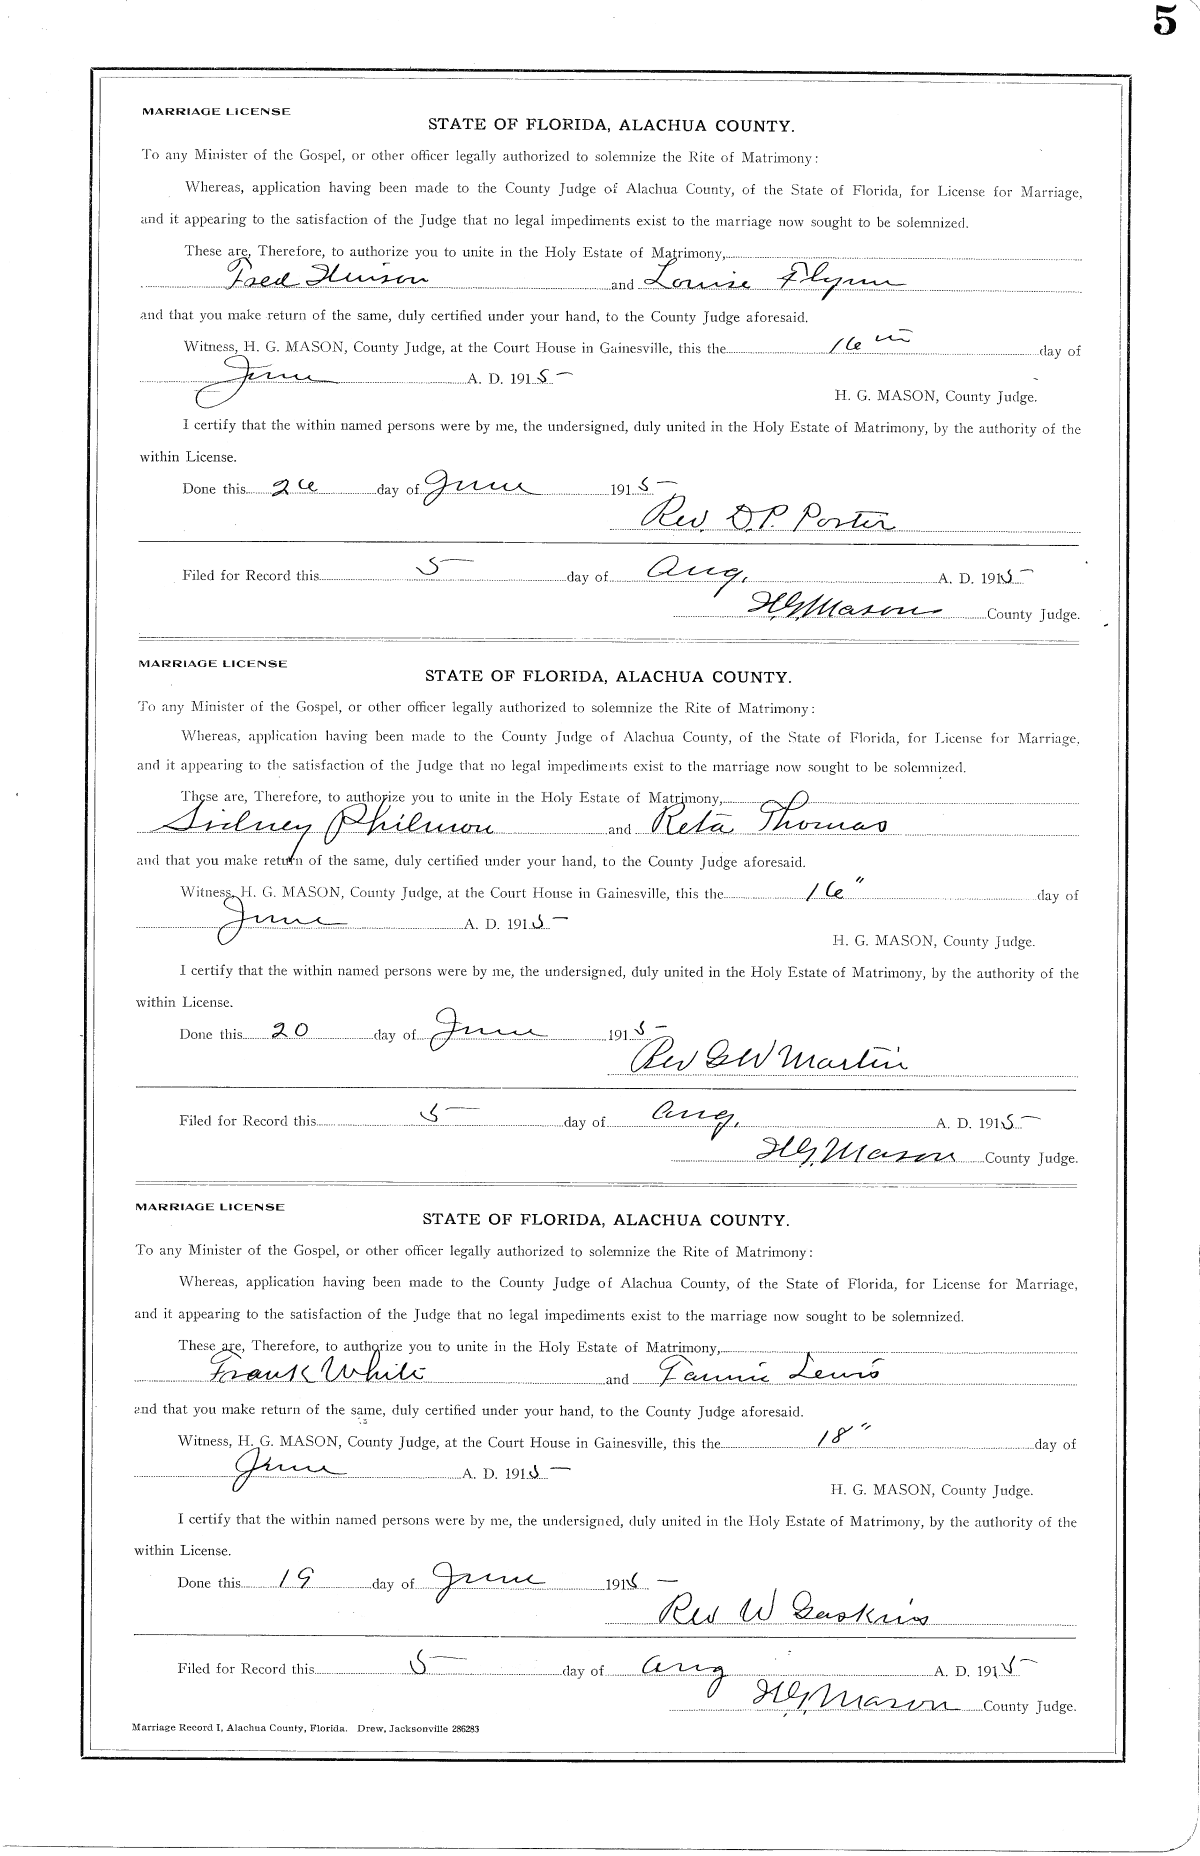 5
MARRIAGE LICENSE
STATE OF FLORIDA, ALACHUA COUNTY.
To any Minister of the Gospel, or other officer legally authorized to solemnize the Rite of Matrimony:
Whereas, application having been made to the County Judge of Alachua County, of the State of Florida, for License for Marriage,
and it appearing to the satisfaction of the Judge that no legal impediments exist to the marriage now sought to be solemnized.
These are, Therefore, to authorize you to unite in the Holy Estate of Matrimony,
Fred and Louise Flynn
and that you make return of the same, duly certified under your hand, to the County Judge aforesaid.
Witness, H. G. MASON, County Judge, at the Court House in Gainesville, this the 16th day of
June A. D. 1915
H. G. MASON, County Judge.
I certify that the within named persons were by me, the undersigned, duly united in the Holy Estate of Matrimony, by the authority of the
within License.
Done this 26 day of June 1915
Rev. D.P. Porter
Filed for Record this 5 day of Aug. A. D. 1915
H.G. Mason County Judge.
MARRIAGE LICENSE
STATE OF FLORIDA, ALACHUA COUNTY.
To any Minister of the Gospel, or other officer legally authorized to solemnize the Rite of Matrimony:
Whereas, application having been made to the County Judge of Alachua County, of the State of Florida, for License for Marriage,
and it appearing to the satisfaction of the Judge that no legal impediments exist to the marriage now sought to be solemnized.
These are, Therefore, to authorize you to unite in the Holy Estate of Matrimony,
Sidney Philmon and Reta Thomas
and that you make return of the same, duly certified under your hand, to the County Judge aforesaid.
Witness, H. G. MASON, County Judge, at the Court House in Gainesville, this the 16" day of
June A. D. 1915
H. G. MASON, County Judge.
I certify that the within named persons were by me, the undersigned, duly united in the Holy Estate of Matrimony, by the authority of the
within License.
Done this 20 day of June 1915
Rev G W Martin
Filed for Record this 5 day of Aug. A. D. 1915
H.G. Mason County Judge.
MARRIAGE LICENSE
STATE OF FLORIDA, ALACHUA COUNTY.
To any Minister of the Gospel, or other officer legally authorized to solemnize the Rite of Matrimony:
Whereas, application having been made to the County Judge of Alachua County, of the State of Florida, for License for Marriage,
and it appearing to the satisfaction of the Judge that no legal impediments exist to the marriage now sought to be solemnized.
These are, Therefore, to authorize you to unite in the Holy Estate of Matrimony,
Frank White and Fannie Lewis
and that you make return of the same, duly certified under your hand, to the County Judge aforesaid.
Witness, H. G. MASON, County Judge, at the Court House in Gainesville, this the 18" day of
June A. D. 1915
H. G. MASON, County Judge.
I certify that the within named persons were by me, the undersigned, duly united in the Holy Estate of Matrimony, by the authority of the
within License.
Done this 19 day of June 1915
Rev W Gaskins
Filed for Record this 5 day of Aug A. D. 1915
H.G. Mason County Judge.
Marriage Record I, Alachua County, Florida. Drew, Jacksonville 286283